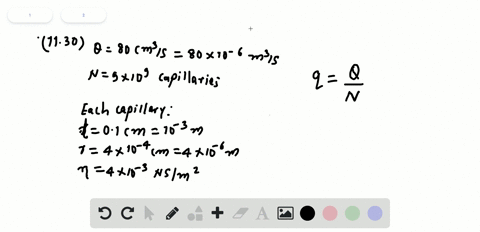 (11.30) Q = 80 cm³/s = 80 × 10⁻⁶ m³/s
N = 9 × 10⁹ capillaries
q = Q/N
Each capillary:
ℓ = 0.1 cm = 10⁻³ m
r = 4 × 10⁻⁴ cm = 4 × 10⁻⁶ m
η = 4 × 10⁻³ NS/m²